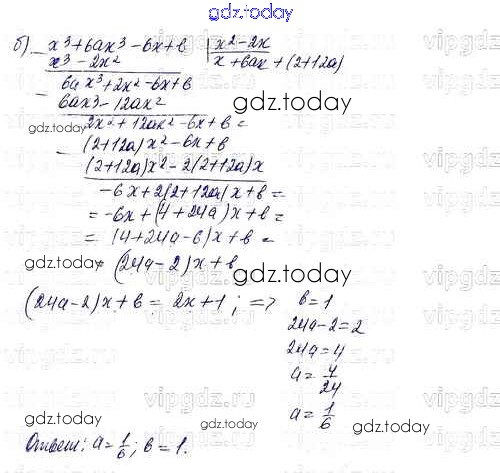 gdz.today
б) x³+6ax³-6x+b | x²-2x
x³-2x² x+6ax+(2+12a)
- 6ax³+2x²-6x+b
6ax³-12ax²
gdz.today
2x²+12ax²-6x+b=
gdz.today
- (2+12a)x²-6x+b
(2+12a)x²-2(2+12a)x
-6x+2(2+12a)x+b=
= -6x+(4+24a)x+b=
= (4+24a-6)x+b=
gdz.today = (24a-2)x+b gdz.today
(24a-2)x+b = 2x+1; => b=1
24a-2=2
24a=4
a=4/24
a=1/6
gdz.today
gdz.today
Ответ: a=1/6; b=1.
vipgdz.ru